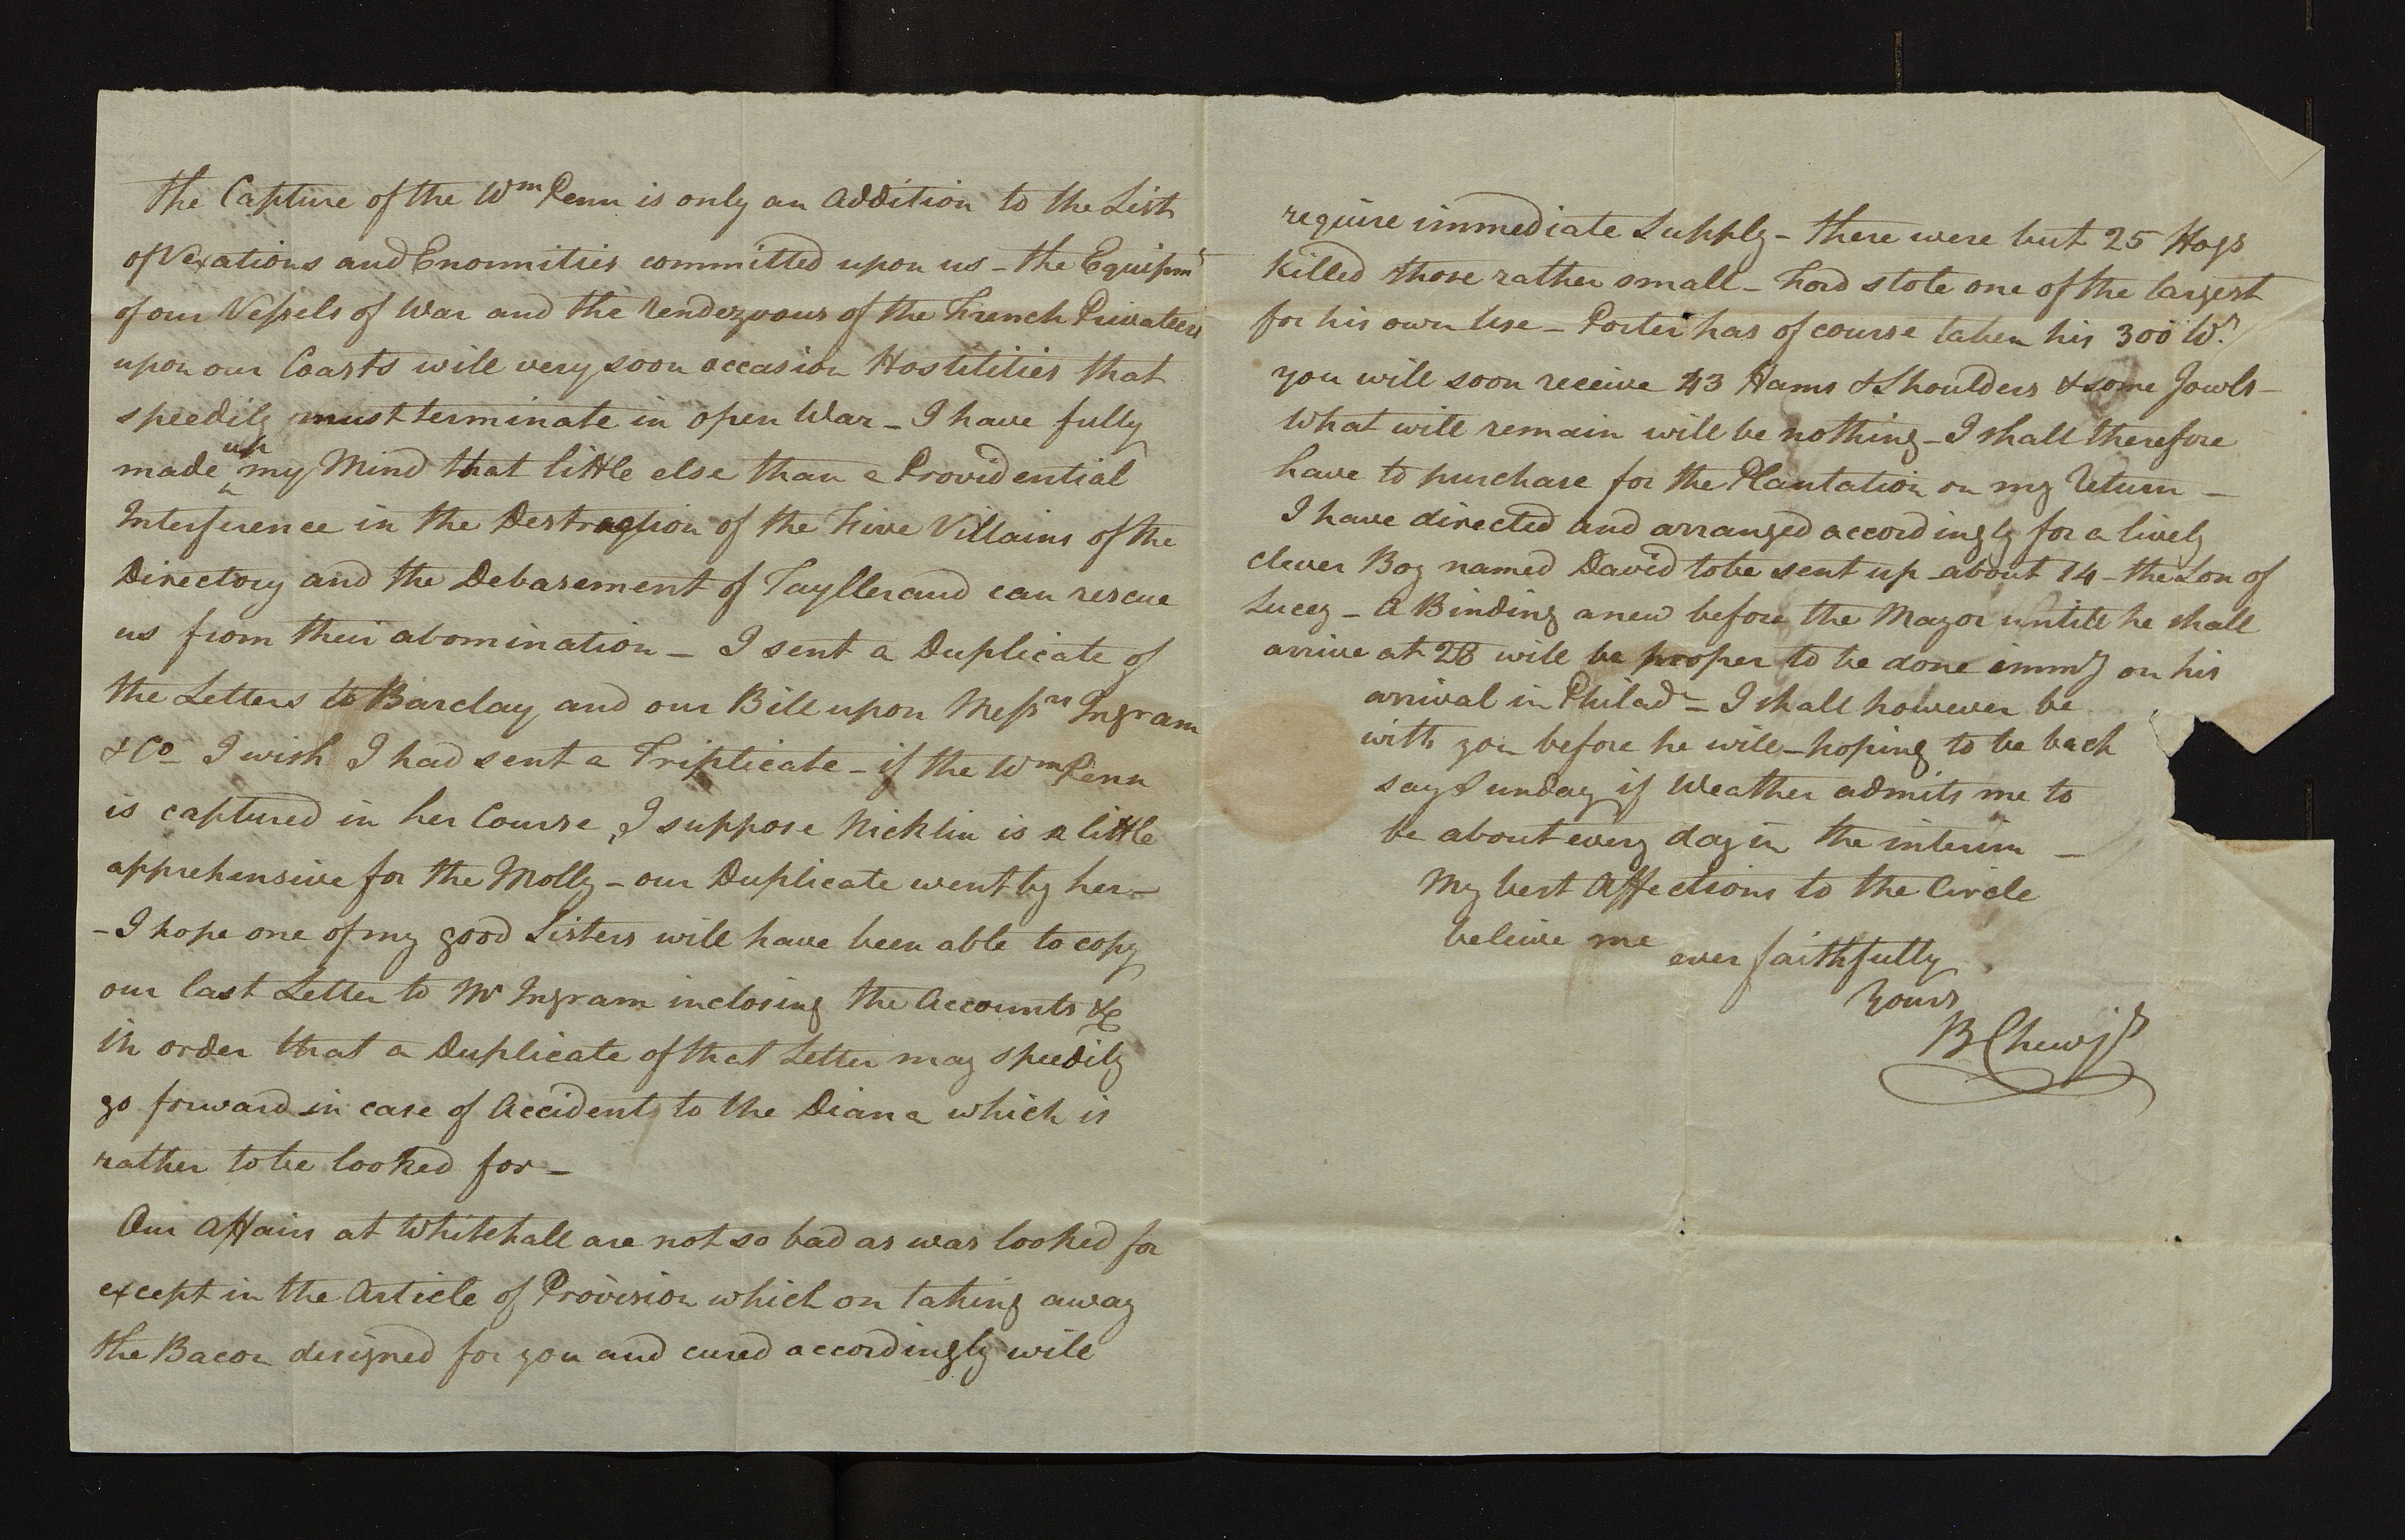 the Capture of the Wm Penn is only an Addition to the List
of Vexations and Enormities committed upon us - the Equipmt
of our Vessels of War and the Rendezvous of the French Privateers
upon our Coasts will very soon occasion Hostilities that
speedily must terminate in open War - I have fully
made up my Mind that little else than a Providential
Interference in the Destruction of the Five Villains of the
Directory and the Debasement of Taylleraud can rescue
us from their abomination - I sent a Duplicate of
the Letters to Barclay and our Bill upon Messrs Ingram
& Co - I wish I had sent a Triplicate - if the Wm Penn
is captured in her Course, I suppose Nicklin is a little
apprehensive for the Molly - our Duplicate went by her -
- I hope one of my good Sisters will have been able to copy
our last Letter to Mr Ingram inclosing the Accounts &c
in order that a Duplicate of that Letter may speedily
go forward in case of Accidents to the Diana which is
rather to be looked for -
Our Affairs at Whitehall are not so bad as was looked for
except in the Article of Provision which on taking away
the Bacon designed for you and cured accordingly will
require immediate Supply - there were but 25 Hogs
killed those rather small - Ford stole one of the largest
for his own Use - Porter has of course taken his 300 Wt.
you will soon receive 43 Hams & Shoulders & some Jowls -
What will remain will be nothing - I shall therefore
have to purchase for the Plantation on my Return -
I have directed and arranged accordingly for a lively
clever Boy named David to be sent up about 14 - the Son of
Lucey - A Binding anew before the Mayor untill he shall
arrive at 28 will be proper to be done immy on his
arrival in Philada - I shall however be
with you before he will - hoping to be back
say Sunday if Weather admits me to
be about every day in the interim -
My best Affections to the Circle
beleive me
ever faithfully
Yours
B Chew jr